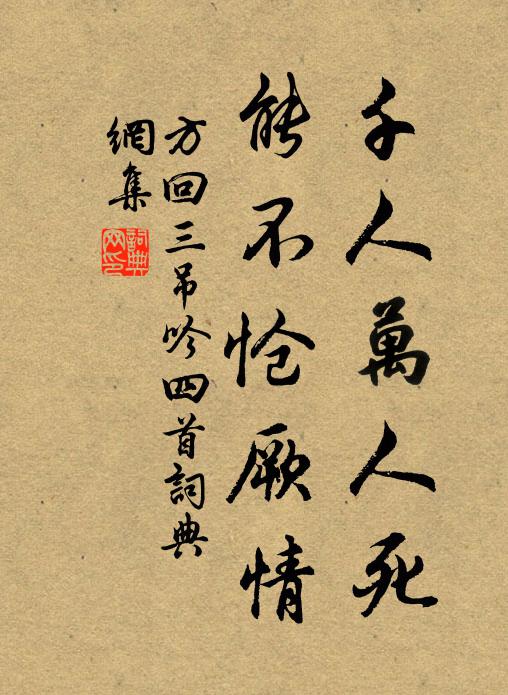 千人萬人死
能不愴厥情
方回三吊吟四首詞典
網集
詞典
网印